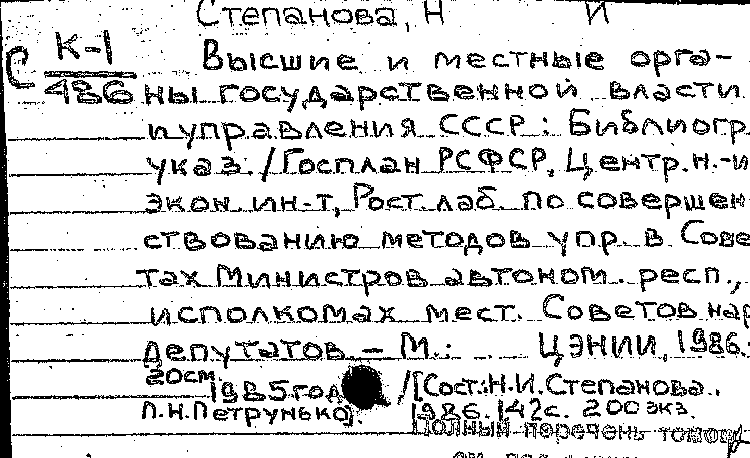 Степанова, Н И
С К-1 Высшие и местные орга-
486 ны государственной власти
и управления СССР: Библиогр
указ. / Госплан РСФСР, Центр. н.-и
экон. ин-т, Рост. лаб. по совершен
ствованию методов упр. в Сове
тах Министров автоном. респ.,
исполкомах мест. Советов нар
депутатов. – М.: ЦЭНИИ, 1986.
20см.
1985 год / [Сост.: Н.И. Степанова.,
Л.Н. Петрунько]. 1986. 142с. 200 экз.
Полный перечень томов